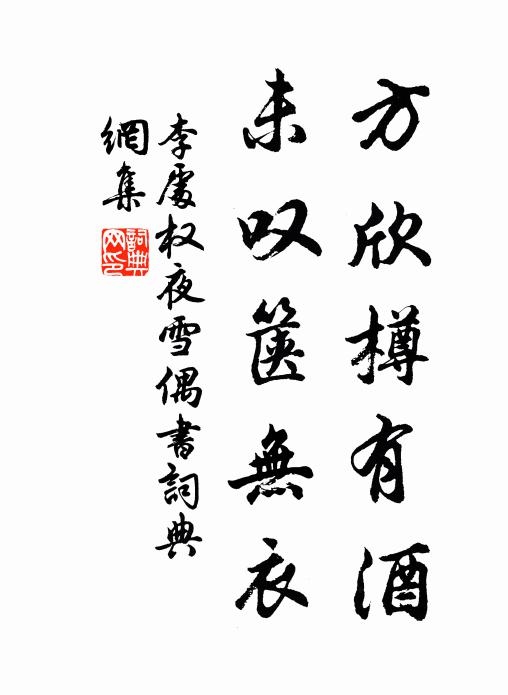 方欣樽有酒
未叹箧無衣
李處权夜雪偶書詞典
網集
詞典網印